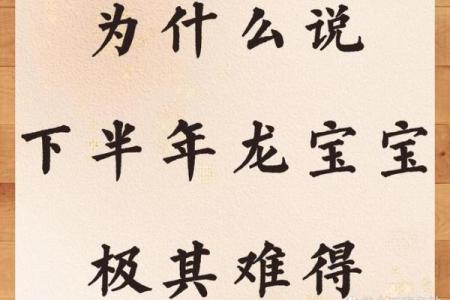 为什么说
下半年龙宝宝
极其难得